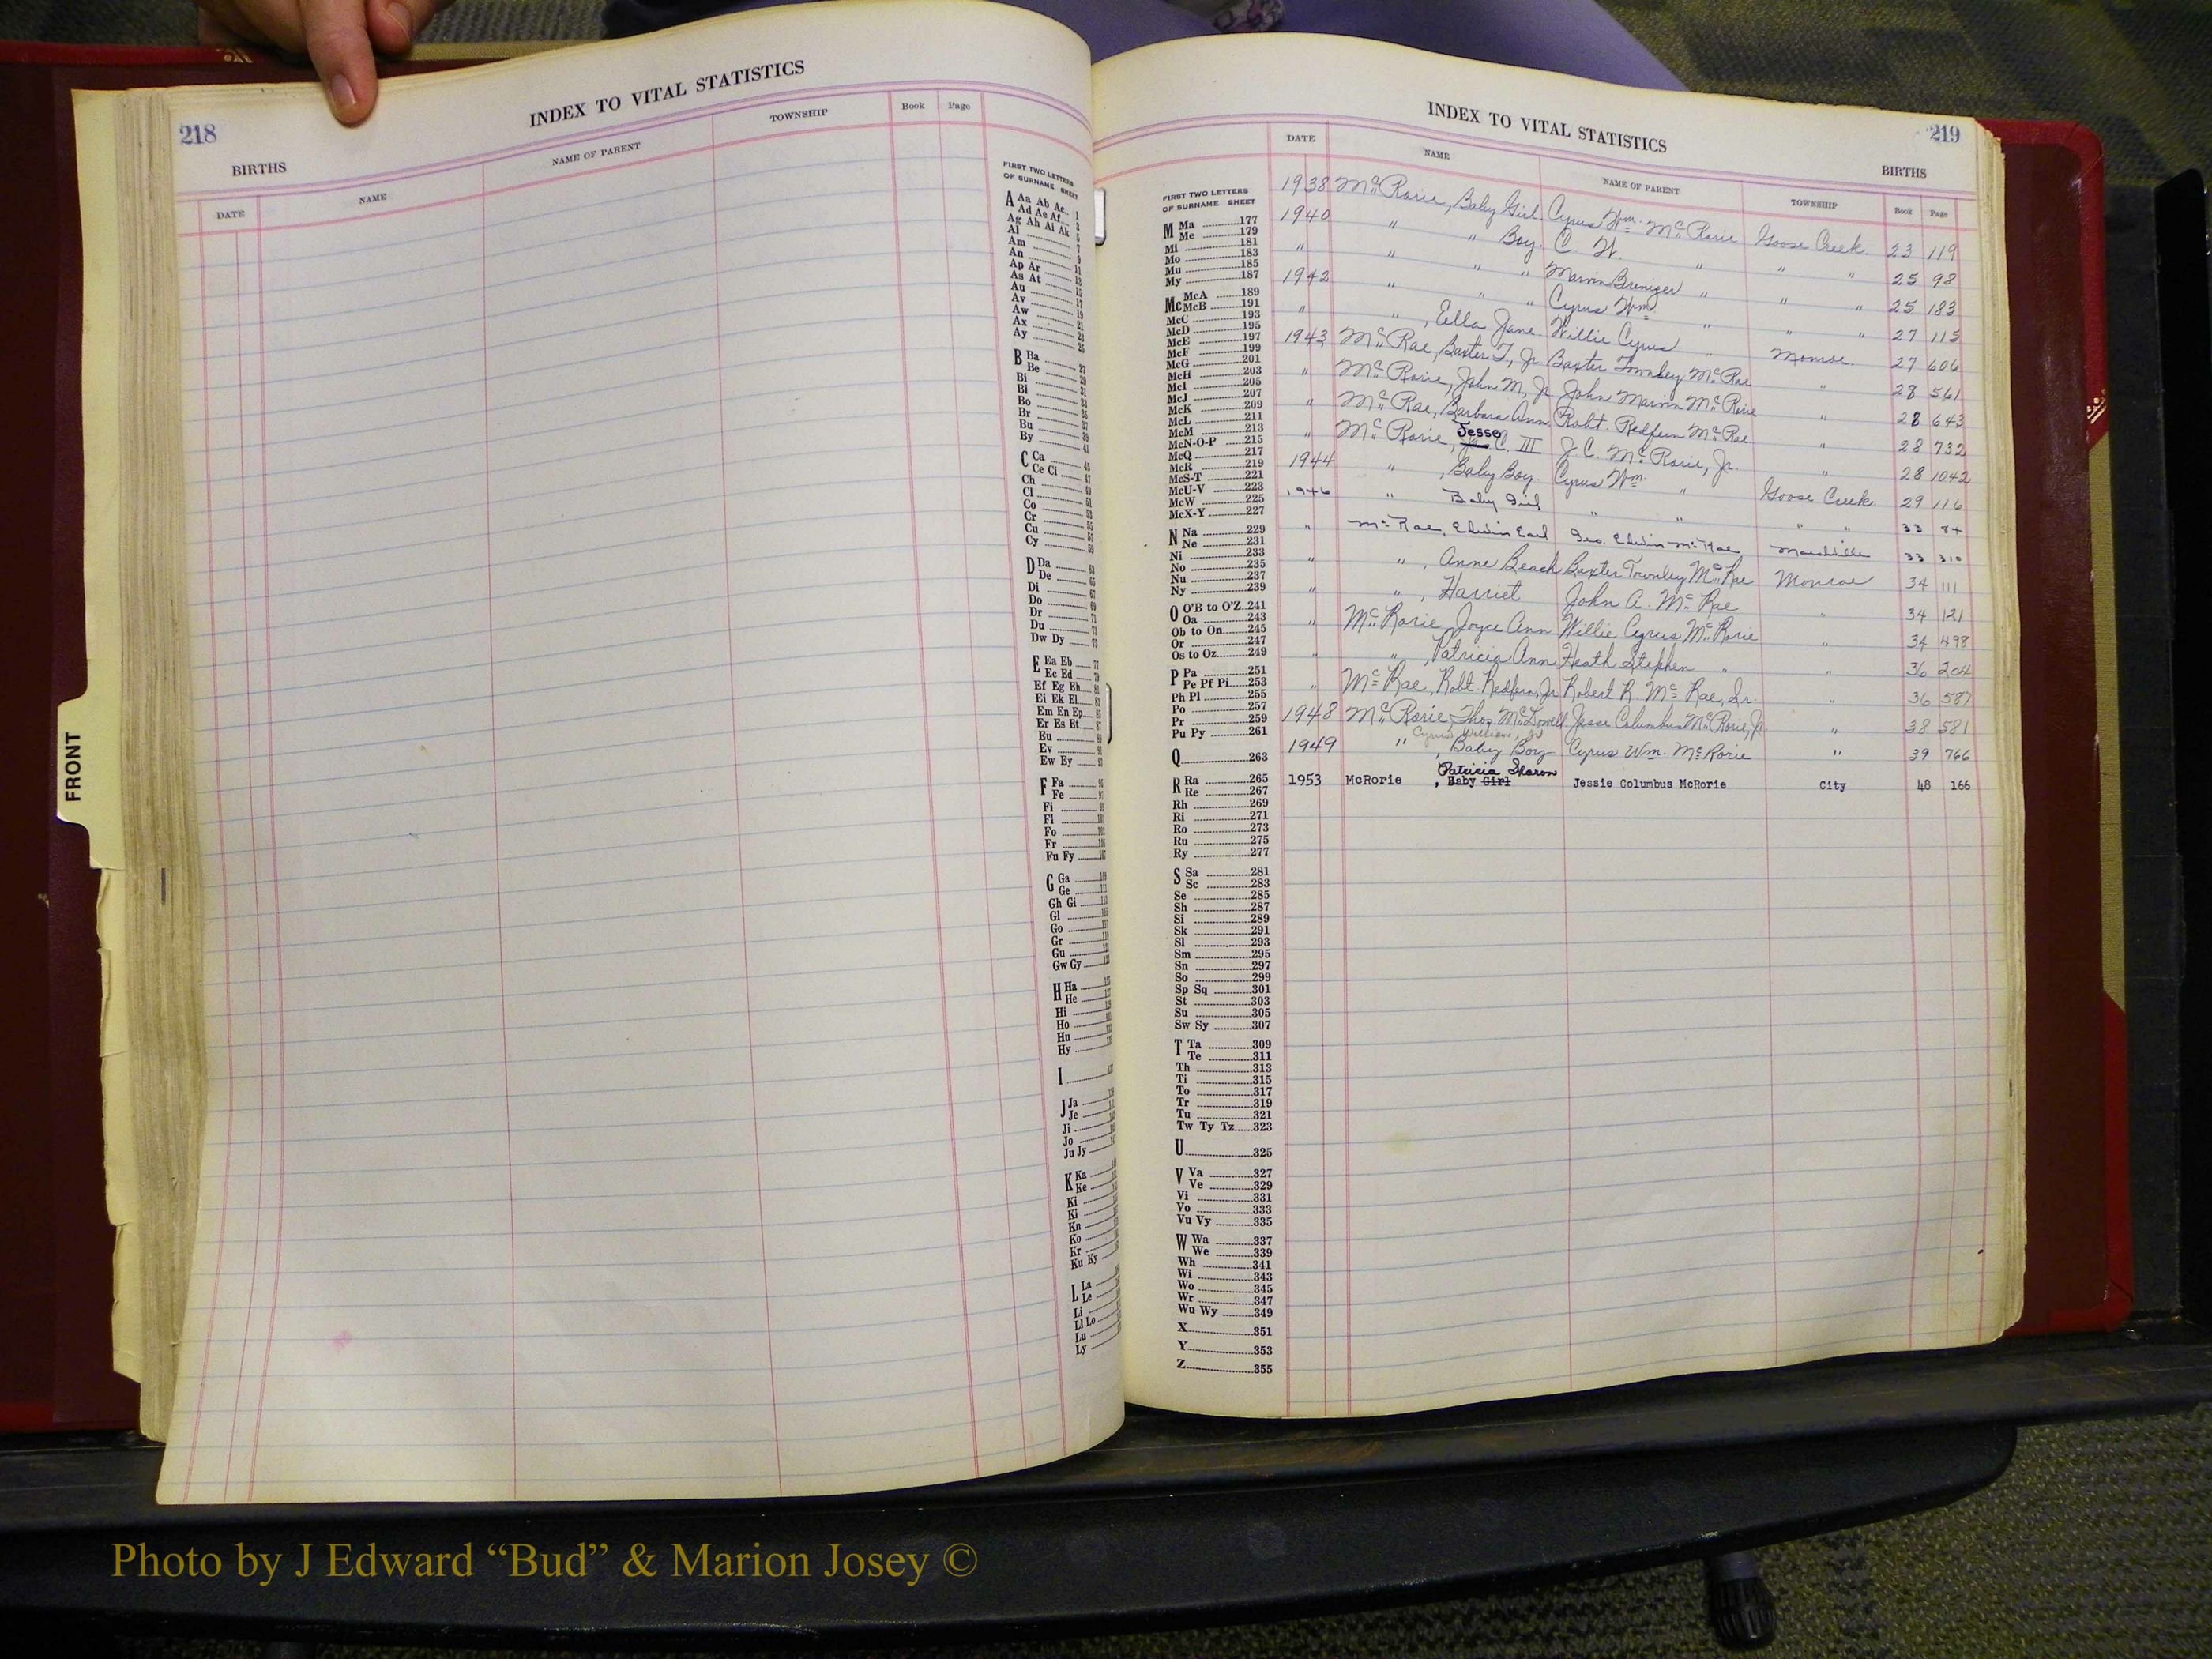 218
INDEX TO VITAL STATISTICS
BIRTHS
DATE NAME NAME OF PARENT TOWNSHIP Book Page
FIRST TWO LETTERS
OF SURNAME SHEET
A Aa Ab Ac 1
Ad Ae Af
Ag Ah Ai Ak
Al
Am
An
Ap Ar
As At
Au
Av
Aw
Ax
Ay
B Ba
Be
Bi
Bl
Bo
Br
Bu
By
C Ca
Ce Ci
Ch
Cl
Co
Cr
Cu
Cy
D Da
De
Di
Do
Dr
Du
Dw Dy
E Ea Eb
Ec Ed
Ef Eg Eh
Ei Ek El
Em En Ep
Er Es Et
Eu
Ev
Ew Ey
F Fa
Fe
Fi
Fl
Fo
Fr
Fu Fy
G Ga
Ge
Gh Gi
Gl
Go
Gr
Gu
Gw Gy
H Ha
He
Hi
Ho
Hu
Hy
I
J Ja
Je
Ji
Jo
Ju Jy
K Ka
Ke
Ki
Kn
Ko
Kr
Ku Ky
L La
Le
Li
Ll Lo
Lu
Ly
FRONT
INDEX TO VITAL STATISTICS
219
BIRTHS
DATE NAME NAME OF PARENT TOWNSHIP Book Page
1938 McRorie, Baby Girl Cyrus Wm. McRorie Goose Creek 23 119
1940 " " Boy. C. W. " " " 25 98
" " " " Marvin Brenizer " " " 25 183
1942 " " " Cyrus Wm. " " " 27 115
" " , Ella Jane. Willie Cyrus " Monroe 27 606
1943 McRae, Baxter T, Jr. Baxter Townley McRae " 28 561
" McRorie, John M, Jr. John Marvin McRorie " 28 643
" McRae, Barbara Ann Robt. Redfern McRae " 28 732
" McRorie, Jesse C. III J. C. McRorie, Jr. " 28 1042
1944 " , Baby Boy. Cyrus Wm. " Goose Creek 29 116
1946 " Baby Girl " " " " 33 84
" McRae, Edwin Earl Geo. Edwin McRae Marshville 33 310
" " , Anne Beach Baxter Townley McRae Monroe 34 111
" " , Harriet John A. McRae " 34 121
" McRorie, Joyce Ann Willie Cyrus McRorie " 34 498
" " , Patricia Ann Heath Stephen " " 36 204
" McRae, Robt. Redfern, Jr Robert R. McRae, Sr. " 36 587
1948 McRorie, Thos. McDowell Jesse Columbus McRorie, Jr " 38 581
Cyrus William, Jr
1949 " , Baby Boy Cyrus Wm. McRorie " 39 766
Patricia Sharon
1953 McRorie , Baby Girl Jessie Columbus McRorie City 48 166
FIRST TWO LETTERS
OF SURNAME SHEET
M Ma 177
Me 179
Mi 181
Mo 183
Mu 185
My 187
Mc McA 189
McB 191
McC 193
McD 195
McE 197
McF 199
McG 201
McH 203
McI 205
McJ 207
McK 209
McL 211
McM 213
McN-O-P 215
McQ 217
McR 219
McS-T 221
McU-V 223
McW 225
McX-Y 227
N Na 229
Ne 231
Ni 233
No 235
Nu 237
Ny 239
O O'B to O'Z 241
Oa 243
Ob to On 245
Or 247
Os to Oz 249
P Pa 251
Pe Pf Pi 253
Ph Pl 255
Po 257
Pr 259
Pu Py 261
Q 263
R Ra 265
Re 267
Rh 269
Ri 271
Ro 273
Ru 275
Ry 277
S Sa 281
Sc 283
Se 285
Sh 287
Si 289
Sk 291
Sl 293
Sm 295
Sn 297
So 299
Sp Sq 301
St 303
Su 305
Sw Sy 307
T Ta 309
Te 311
Th 313
Ti 315
To 317
Tr 319
Tu 321
Tw Ty Tz 323
U 325
V Va 327
Ve 329
Vi 331
Vo 333
Vu Vy 335
W Wa 337
We 339
Wh 341
Wi 343
Wo 345
Wr 347
Wu Wy 349
X 351
Y 353
Z 355
Photo by J Edward “Bud” & Marion Josey ©